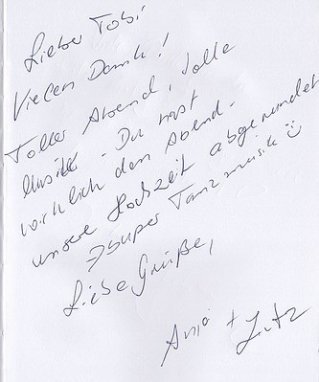 Lieber Tobi
Vielen Dank!
Toller Abend, tolle
Musik - Du hast
wirklich den Abend -
unsere Hochzeit abgerundet
→ Super Tanzmusik ☺
Liebe Grüße,
Anja + Lutz